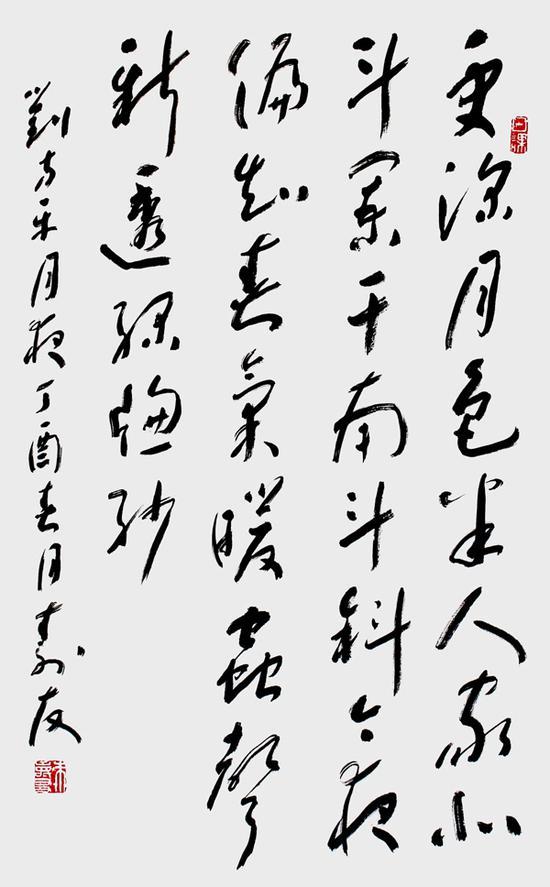 更深月色半人家北
斗阑干南斗斜今夜
偏知春气暖虫声
新透绿窗纱
刘方平月夜丁酉春月寿友